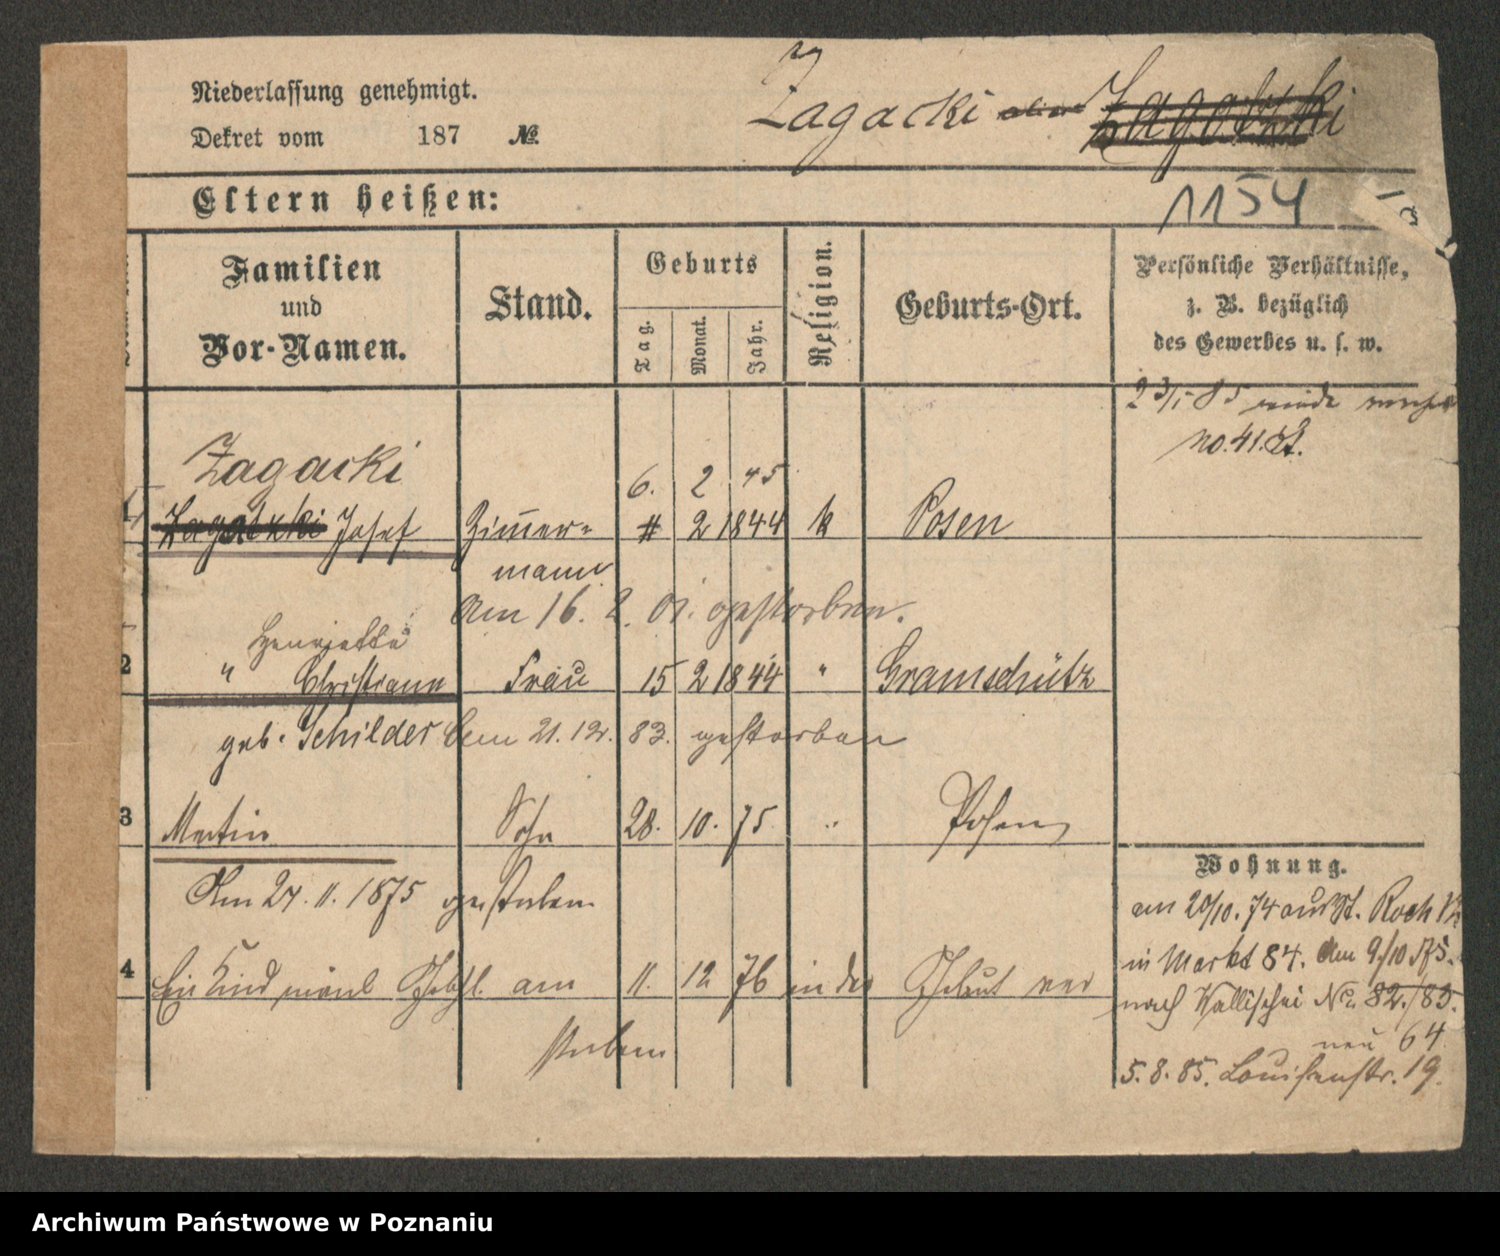 Niederlassung genehmigt.
Dekret vom 187 №
Zagacki
Eltern heißen:
1154
Familien und Vor-Namen.
Stand.
Geburts
Tag.
Monat.
Jahr.
Religion.
Geburts-Ort.
Persönliche Verhältnisse,
z. B. bezüglich
des Gewerbes u. s. w.
no. 41.
Zagacki
6. 2 45
1 Zagatzki Josef Zimmer= 2 1844 k Posen
mann
Am 16. 2. 01. gestorben.
Henriette
2 " Christiane Frau 15 2 1844 " Gramschütz
geb. Schilder Am 21. 12. 83. gestorben
3 Martin Sohn 28. 10. 75 " Posen
Am 27. 11. 1875 gestorben
4 Ein Kind am 11. 12 76 in der Geburt ver
storben
Wohnung.
am 20/10. 74 aus St. Roch
in Markt 84. Am 9/10 75.
nach Wallischei No. 82./83.
neu 64
5. 8. 85. Louisenstr. 19.
Archiwum Państwowe w Poznaniu